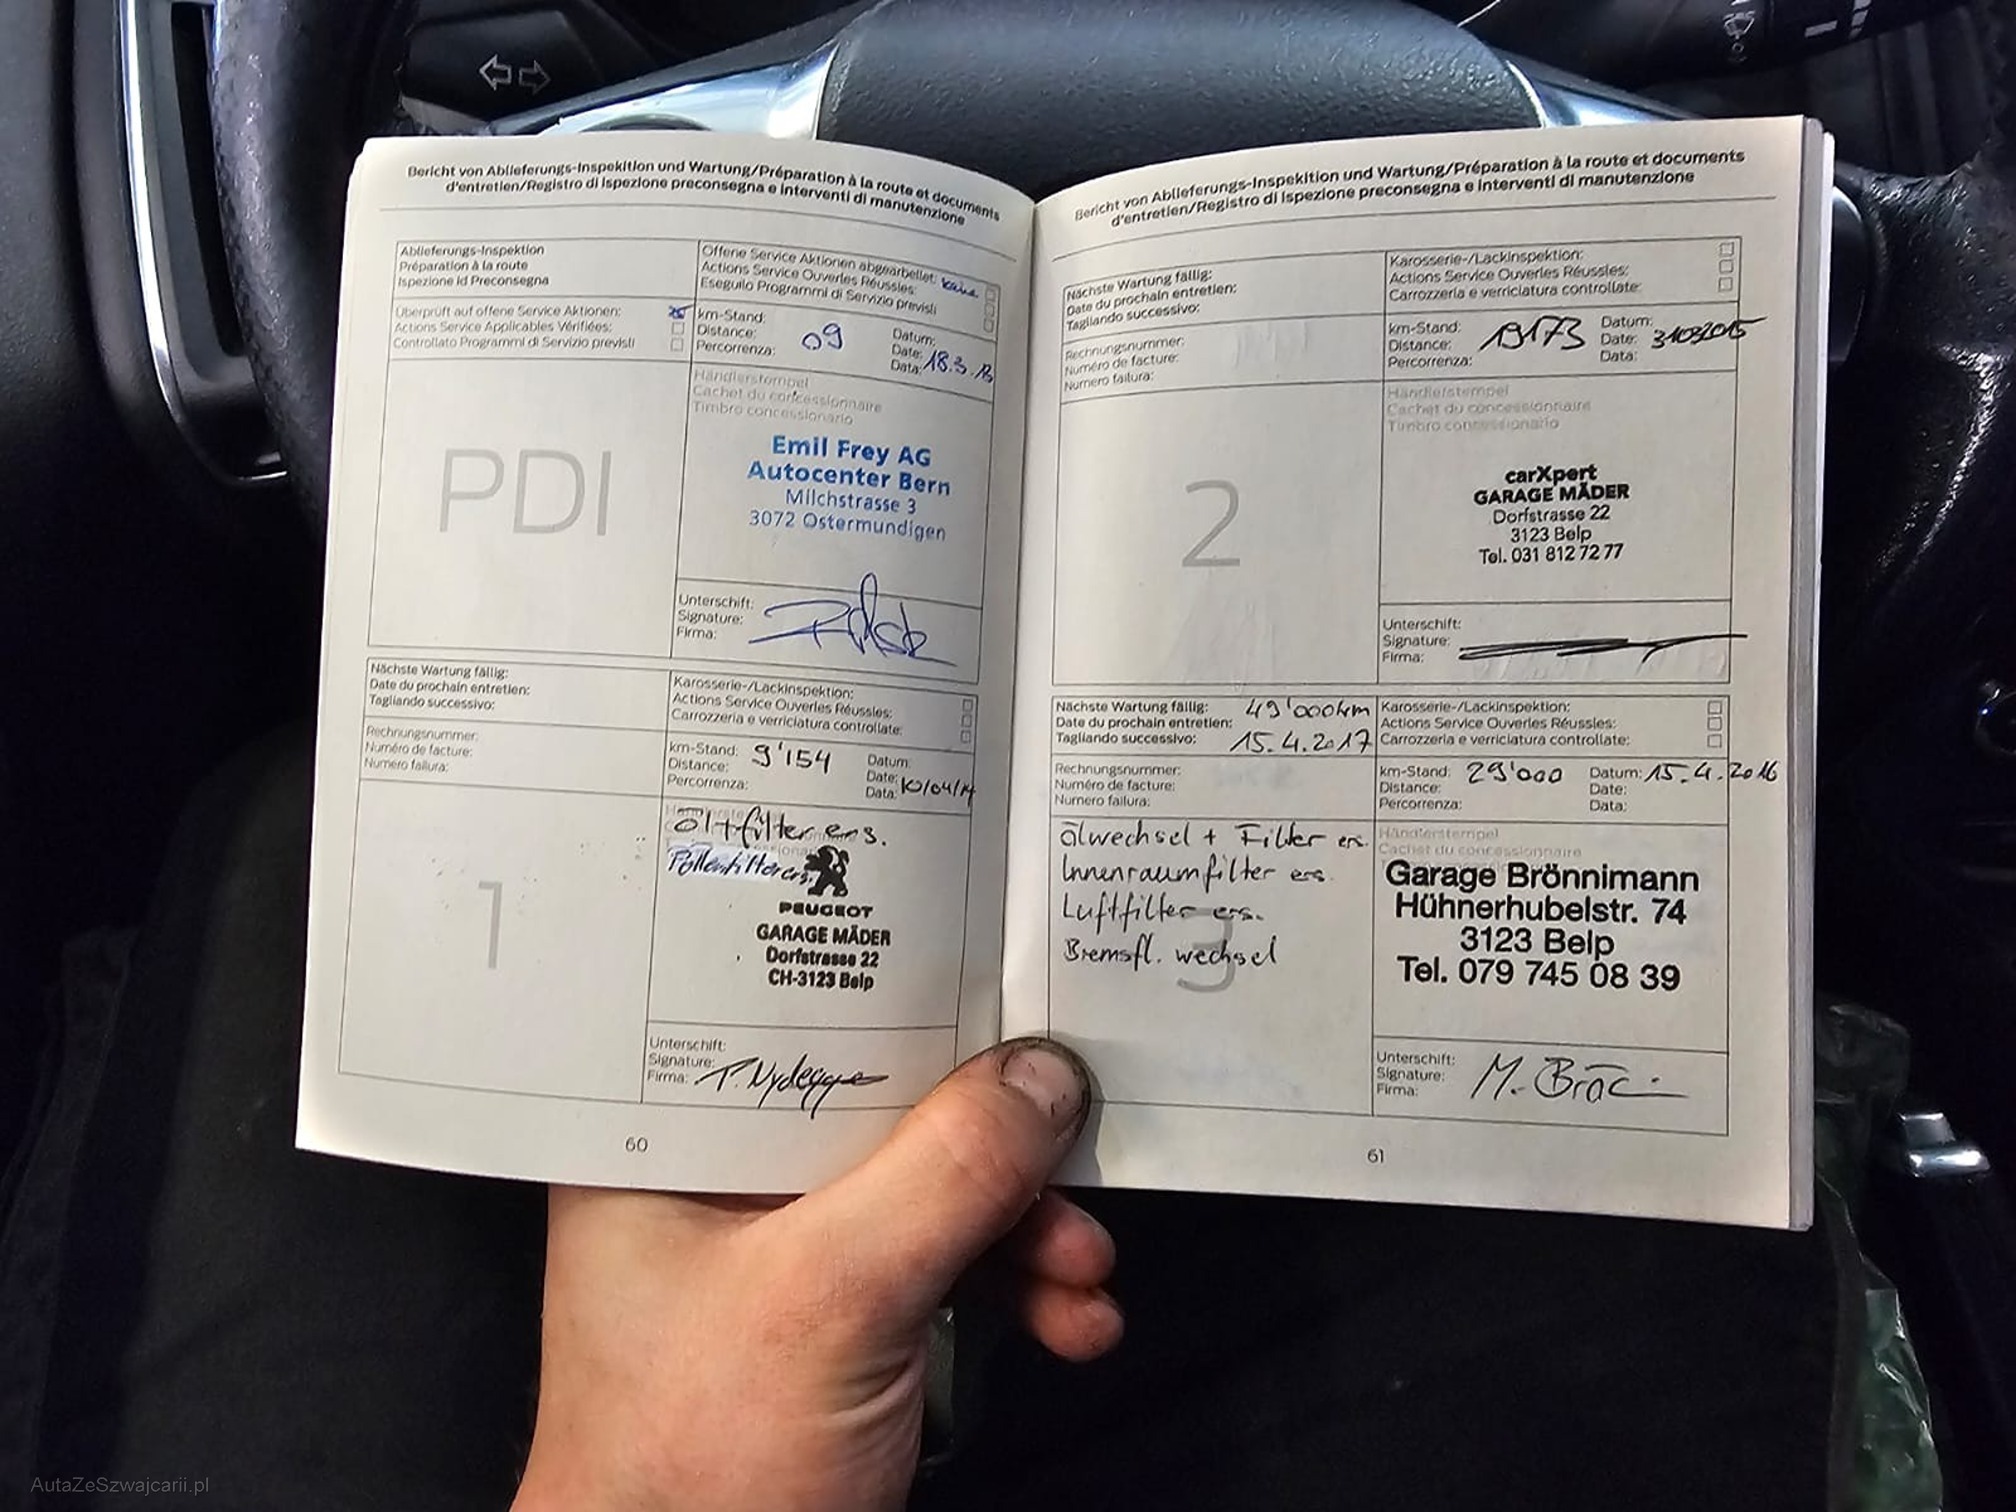 Bericht von Ablieferungs-Inspekition und Wartung/Préparation à la route et documents
d'entretien/Registro di ispezione preconsegna e interventi di manutenzione
Ablieferungs-Inspektion
Préparation à la route
Ispezione id Preconsegna
Offene Service Aktionen abgearbeitet: keine
Actions Service Ouverles Réussies:
Eseguilo Programmi di Servizio previsli
Überprüft auf offene Service Aktionen:
Actions Service Applicables Vérifiées:
Controllato Programmi di Servizio previsli
km-Stand:
Distance: 09
Percorrenza:
Datum:
Date: 18.3.13
Data:
PDI
Händlerstempel
Cachet du concessionnaire
Timbro concessionario
Emil Frey AG
Autocenter Bern
Milchstrasse 3
3072 Ostermundigen
Unterschift:
Signature:
Firma:
Nächste Wartung fällig:
Date du prochain entretien:
Tagliando successivo:
Karosserie-/Lackinspektion:
Actions Service Ouverles Réussles:
Carrozzeria e verriciatura controllate:
Rechnungsnummer:
Numéro de facture:
Numero failura:
km-Stand: 9'154
Distance:
Percorrenza:
Datum:
Date: 10/04/14
Data:
1
Öl+filter ers.
Pollenfilter ers.
PEUGEOT
GARAGE MÄDER
Dorfstrasse 22
CH-3123 Belp
Unterschift:
Signature: T. Nydegger
Firma:
60
Bericht von Ablieferungs-Inspekition und Wartung/Préparation à la route et documents
d'entretien/Registro di ispezione preconsegna e interventi di manutenzione
Nächste Wartung fällig:
Date du prochain entretien:
Tagliando successivo:
Karosserie-/Lackinspektion:
Actions Service Ouverles Réussles:
Carrozzeria e verriciatura controllate:
Rechnungsnummer:
Numéro de facture:
Numero failura:
km-Stand: 19173
Distance:
Percorrenza:
Datum: 31032015
Date:
Data:
2
Händlerstempel
Cachet du concessionnaire
Timbro concessionario
carXpert
GARAGE MÄDER
Dorfstrasse 22
3123 Belp
Tel. 031 812 72 77
Unterschift:
Signature:
Firma:
Nächste Wartung fällig: 49'000km
Date du prochain entretien:
Tagliando successivo: 15.4.2017
Karosserie-/Lackinspektion:
Actions Service Ouverles Réussles:
Carrozzeria e verriciatura controllate:
Rechnungsnummer:
Numéro de facture:
Numero failura:
km-Stand: 29'000
Distance:
Percorrenza:
Datum: 15.4.2016
Date:
Data:
Ölwechsel + Filter ers.
Innenraumfilter ers.
Luftfilter ers.
Bremsfl. wechsel
3
Händlerstempel
Cachet du concessionnaire
Garage Brönnimann
Hühnerhubelstr. 74
3123 Belp
Tel. 079 745 08 39
Unterschift:
Signature:
Firma:
61
AutaZeSzwajcarii.pl